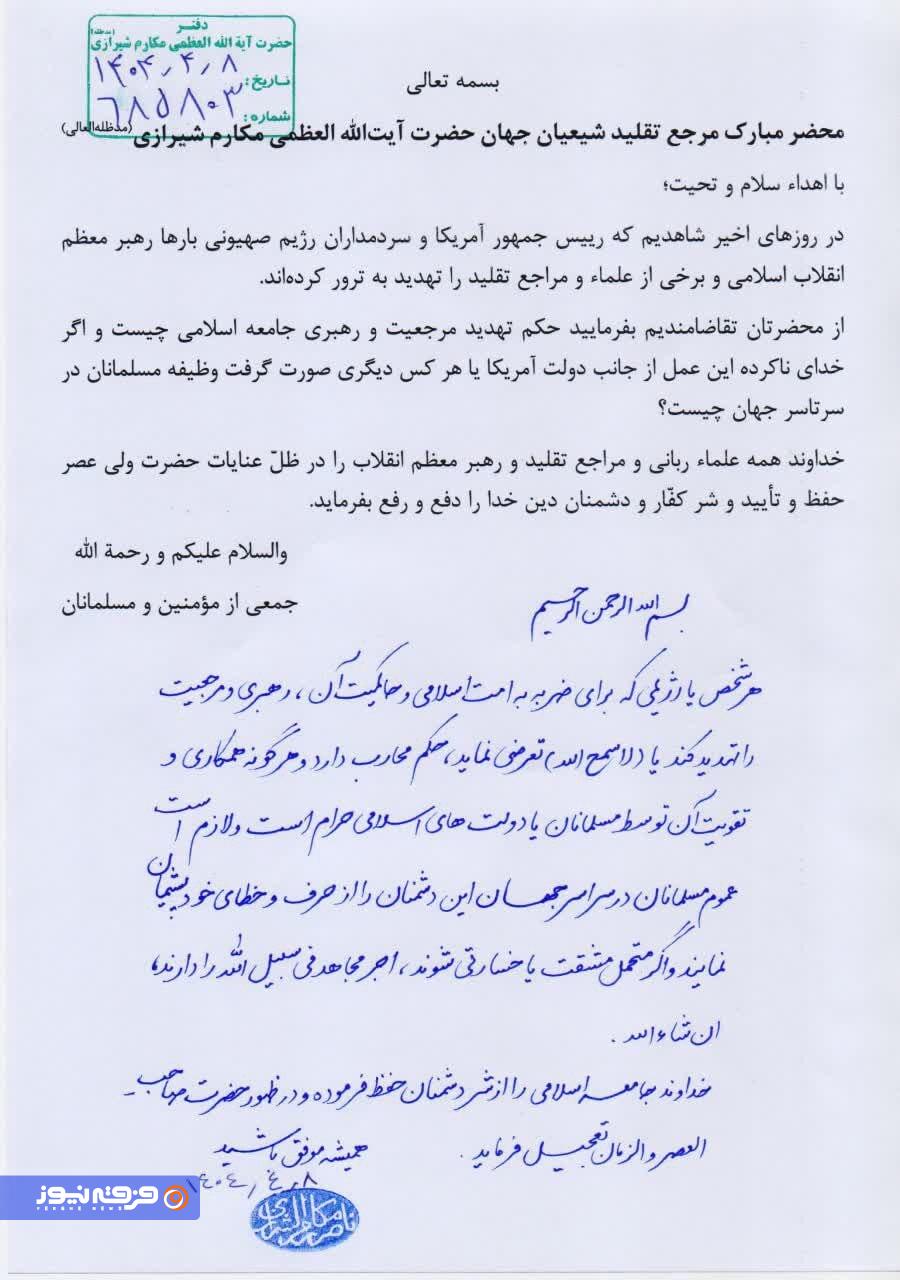 دفتر
حضرت آیة الله العظمی مکارم شیرازی (مدظله)
تاریخ: ۱۴۰۴٫۴٫۸
شماره: ۶۸۵۸۰۳
بسمه تعالی
محضر مبارک مرجع تقلید شیعیان جهان حضرت آیت‌الله العظمی مکارم شیرازی (مدظله‌العالی)
با اهداء سلام و تحیت؛
در روزهای اخیر شاهدیم که رییس جمهور آمریکا و سردمداران رژیم صهیونی بارها رهبر معظم
انقلاب اسلامی و برخی از علماء و مراجع تقلید را تهدید به ترور کرده‌اند.
از محضرتان تقاضامندیم بفرمایید حکم تهدید مرجعیت و رهبری جامعه اسلامی چیست و اگر
خدای ناکرده این عمل از جانب دولت آمریکا یا هر کس دیگری صورت گرفت وظیفه مسلمانان در
سرتاسر جهان چیست؟
خداوند همه علماء ربانی و مراجع تقلید و رهبر معظم انقلاب را در ظلّ عنایات حضرت ولی عصر
حفظ و تأیید و شر کفّار و دشمنان دین خدا را دفع و رفع بفرماید.
والسلام علیکم و رحمة الله
جمعی از مؤمنین و مسلمانان
بسم الله الرحمن الرحیم
هر شخص یا رژیمی که برای ضربه به امت اسلامی و حاکمیت آن، رهبری و مرجعیت
را تهدید کند یا (لا سمح الله) تعرضی نماید، حکم محارب دارد و هرگونه همکاری و
تقویت آن توسط مسلمانان یا دولت های اسلامی حرام است و لازم است
عموم مسلمانان در سراسر جهان این دشمنان را از حرف و خطای خود پشیمان
نمایند و اگر متحمل مشقت یا خسارتی شوند، اجر مجاهد فی سبیل الله را دارند،
ان شاء الله.
خداوند جامعه اسلامی را از شر دشمنان حفظ فرموده و در ظهور حضرت صاحب
العصر و الزمان تعجیل فرماید.
همیشه موفق باشید
۱۴۰۴٫۴٫۸
ناصر مکارم الشیرازی
فرفته نیوز
FERGHE NEWS